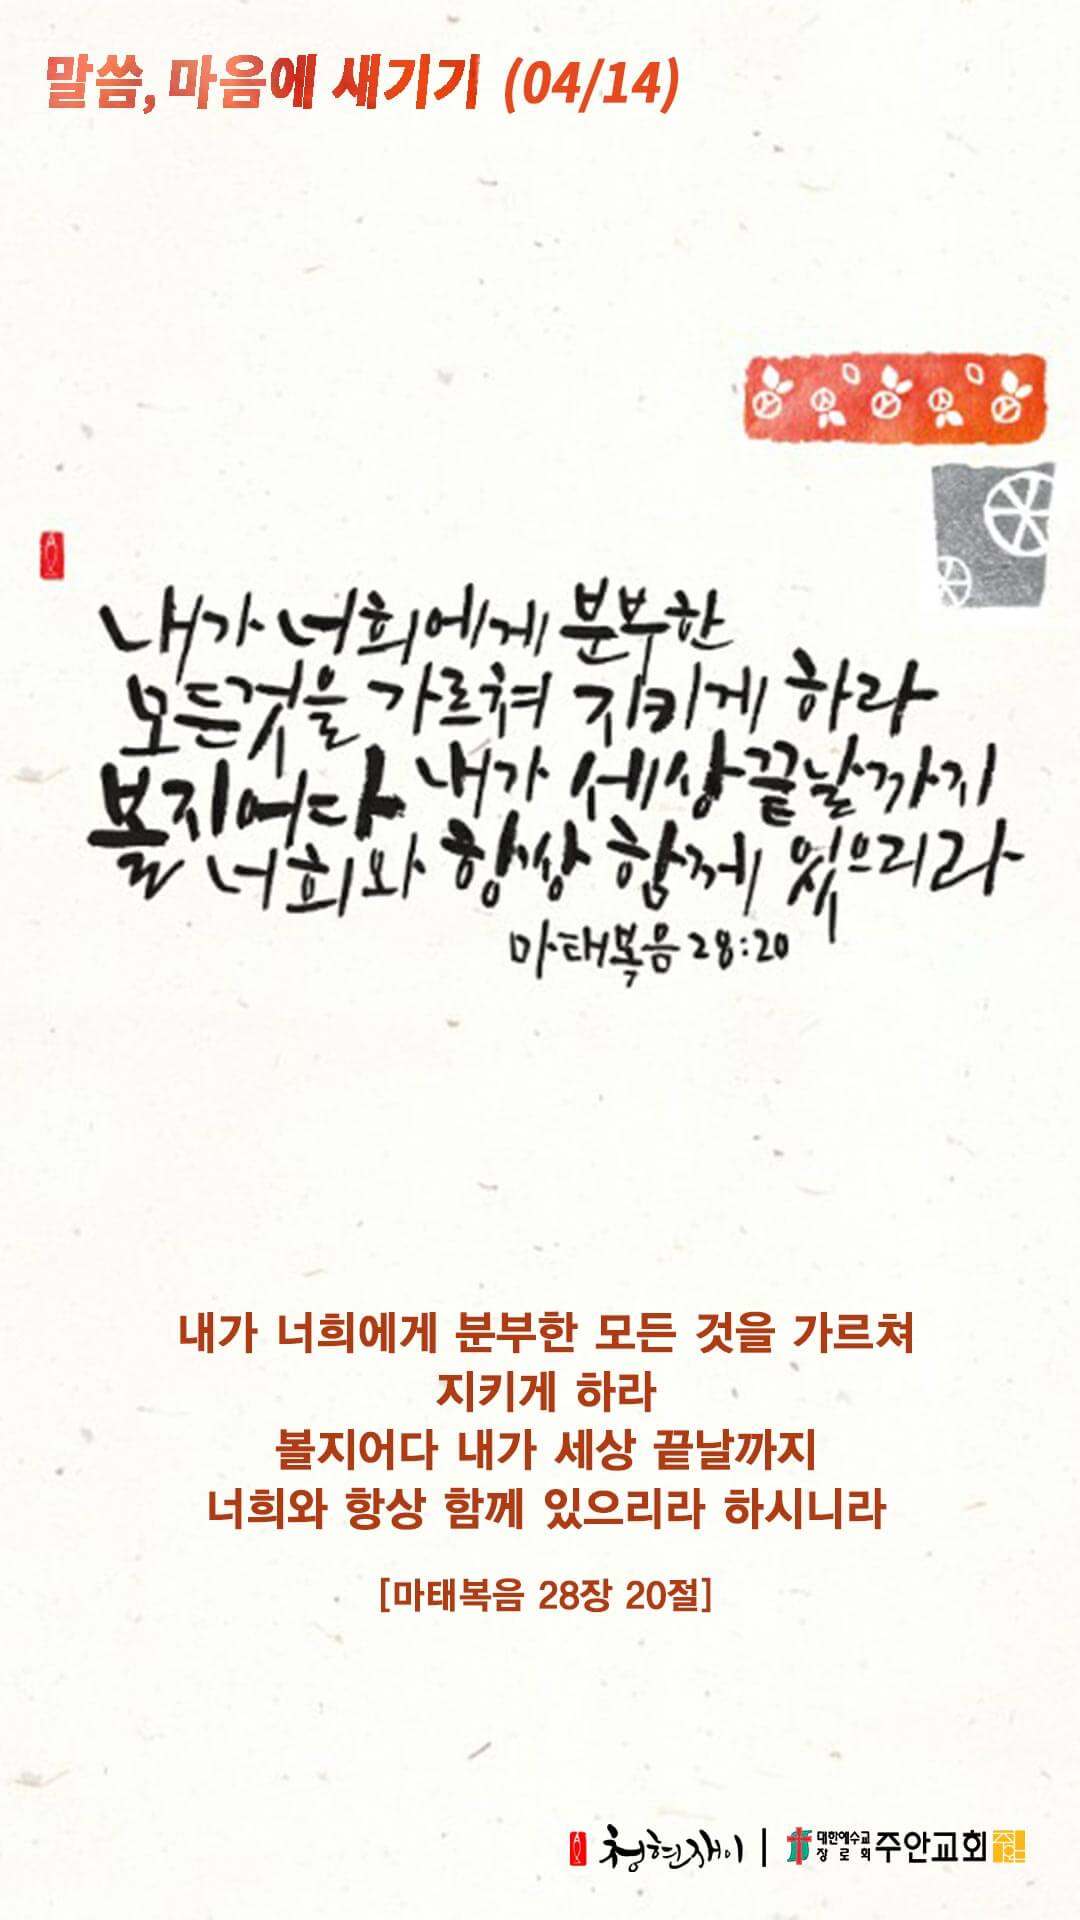 말씀, 마음에 새기기 (04/14)
내가 너희에게 분부한
모든것을 가르쳐 지키게 하라
볼지어다 내가 세상끝날까지
너희와 항상 함께 있으리라
마태복음 28:20
내가 너희에게 분부한 모든 것을 가르쳐
지키게 하라
볼지어다 내가 세상 끝날까지
너희와 항상 함께 있으리라 하시니라
[마태복음 28장 20절]
청현재이 | 대한예수교 장로회 주안교회